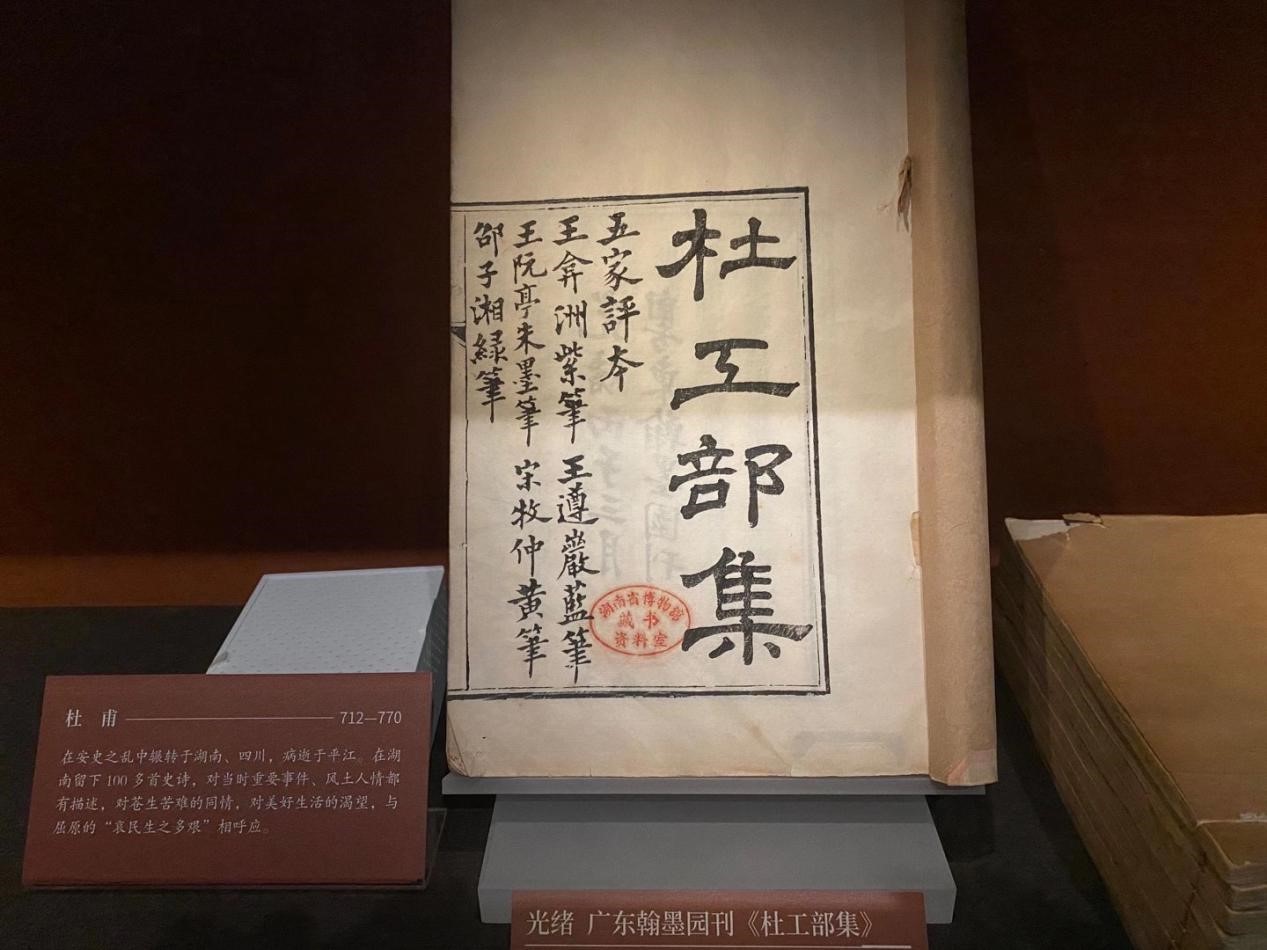 杜工部集
五家評本
王弇洲紫筆 王遵巖藍筆
王阮亭朱墨筆 宋牧仲黃筆
邵子湘緑筆
湖南省博物館
藏书
资料室
杜 甫 712—770
在安史之乱中辗转于湖南、四川，病逝于平江。在湖
南留下 100 多首史诗，对当时重要事件、风土人情都
有描述，对苍生苦难的同情，对美好生活的渴望，与
屈原的“哀民生之多艰”相呼应。
光绪 广东翰墨园刊《杜工部集》